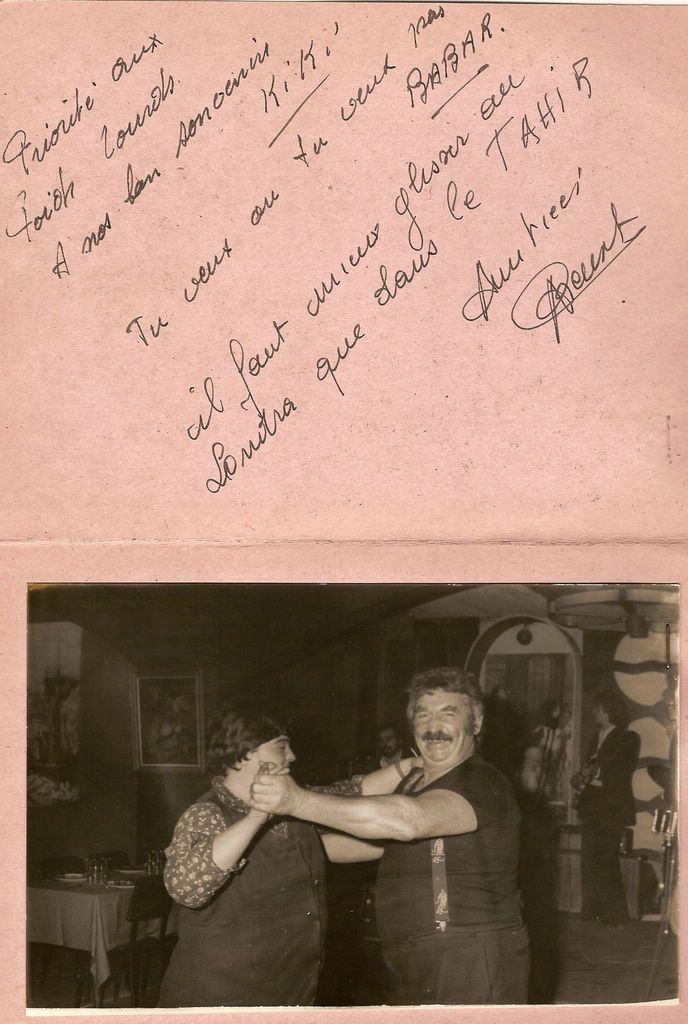 Priorité aux
Poids Lourds.
A nos bon souvenirs
KiKi'
Tu veux ou tu veux pas
BABAR.
il faut mieux glisser au
Londra que dans le TAHIR
Amitiés